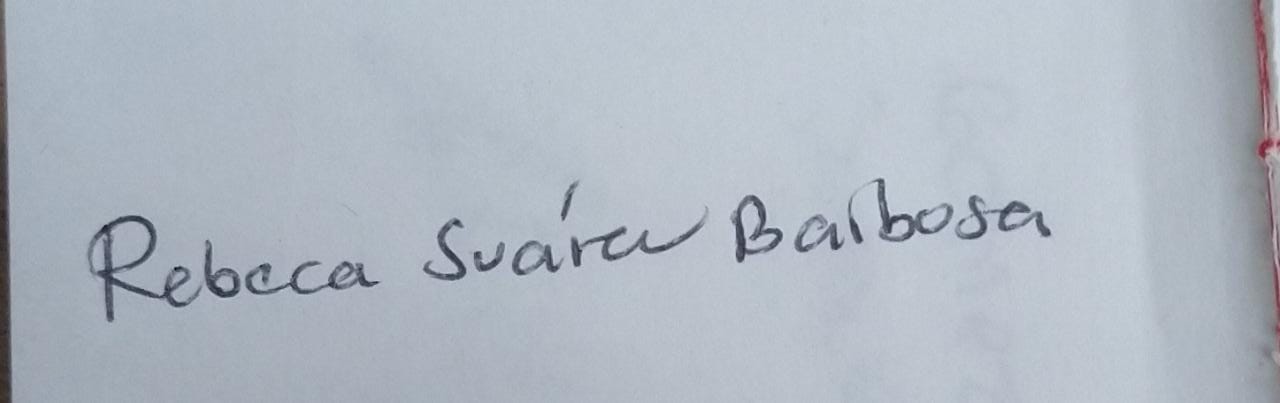 Rebeca Suárez Barbosa